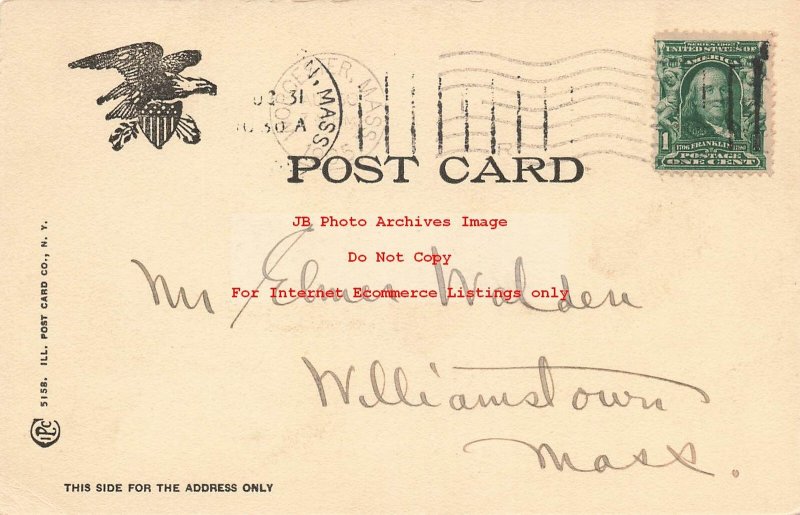 SERIES 1902
UNITED STATES OF
AMERICA
1
1706 FRANKLIN 1790
POSTAGE
ONE CENT
WORCESTER, MASS
31
30 A
POST CARD
JB Photo Archives Image
Do Not Copy
For Internet Ecommerce Listings only
Mr Elmer Walden
Williamstown
Mass.
5158. ILL. POST CARD CO., N. Y.
IPC
THIS SIDE FOR THE ADDRESS ONLY